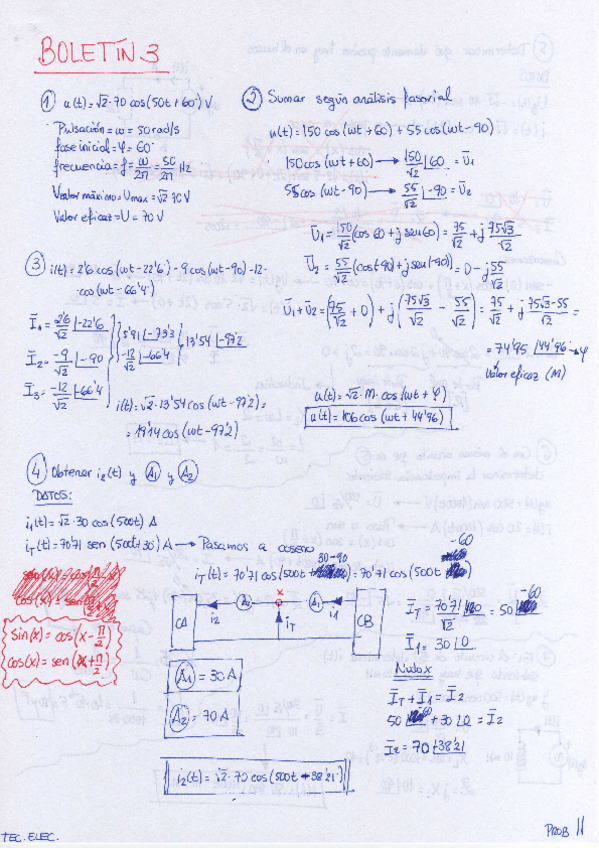 BOLETÍN 3
① u(t)=√2·70 cos(50t+60º) V
Pulsación=ω=50 rad/s
fase inicial=φ=60º
frecuencia=f=ω/2π=50/2π Hz
Valor máximo=Umax=√2 70 V
Valor eficaz=U=70 V
② Sumar según análisis fasorial
u(t)=150 cos(ωt+60)+55 cos(ωt-90)
150 cos(ωt+60) → 150/√2 |60 = Ū₁
55 cos(ωt-90) → 55/√2 |-90 = Ū₂
Ū₁=150/√2 (cos 60+j sen 60)=75/√2+j 75√3/√2
Ū₂=55/√2 (cos(-90)+j sen(-90))=0-j 55/√2
Ū₁+Ū₂=(75/√2+0)+j(75√3/√2-55/√2)=75/√2+j (75√3-55)/√2=
=74'95 |44'96→φ
Valor eficaz (M)
u(t)=√2·M·cos(ωt+φ)
u(t)=106 cos(ωt+44'96)
③ i(t)=2'6 cos(ωt-22'6)-9 cos(ωt-90)-12·
·cos(ωt-66'4)
Ī₁=2'6/√2 |-22'6
Ī₂=-9/√2 |-90
Ī₃=-12/√2 |66'4
-12/√2 |-66'4
13'54 |-97'2
i(t)=√2·13'54 cos(ωt-97'2)=
=19'14 cos(ωt-97'2)
④ Obtener i₂(t) y A₁ y A₂
DATOS:
i₁(t)=√2·30 cos(500t) A
iT(t)=70'71 sen(500t+30º) A → Pasamos a coseno
30-90
-60
iT(t)=70'71 cos(500t)=70'71 cos(500t
sin(x)=cos(x-π/2)
cos(x)=sen(x+π/2)
CA
A₂
i₂
x
iT
A₁
i₁
CB
A₁=30 A
A₂=70 A
ĪT=70'71/√2=50 |-60
Ī₁=30 |0
Nudo x
ĪT+Ī₁=Ī₂
50 |-60+30 |0=Ī₂
Ī₂=70 |-38'21
i₂(t)=√2·70 cos(500t-38'21)
TEC. ELEC.
PROB 11